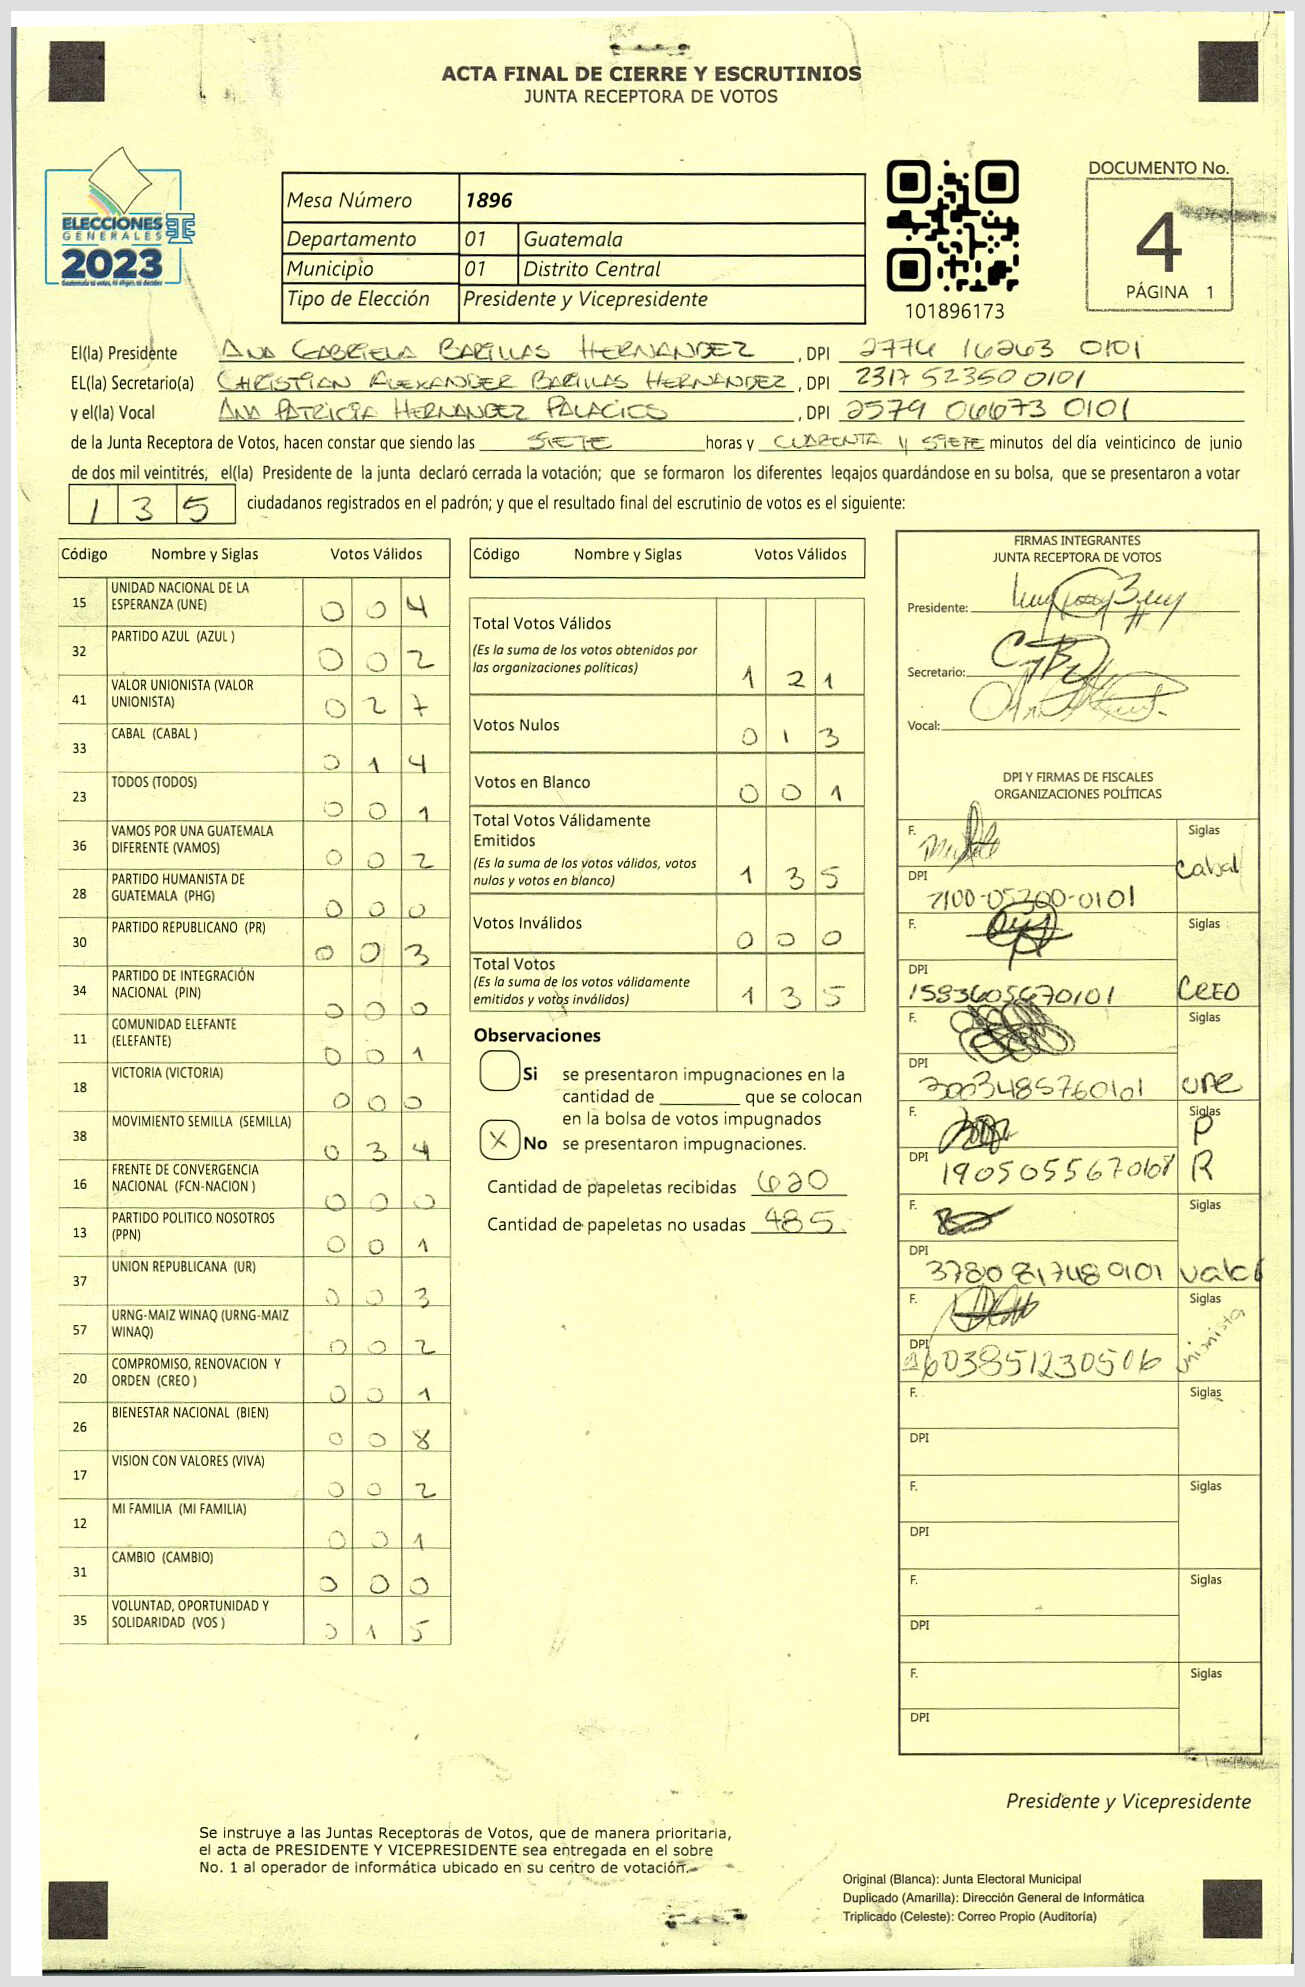 ACTA FINAL DE CIERRE Y ESCRUTINIOS
JUNTA RECEPTORA DE VOTOS
ELECCIONES
GENERALES
2023
Mesa Número 1896
Departamento 01 Guatemala
Municipio 01 Distrito Central
Tipo de Elección Presidente y Vicepresidente
101896173
DOCUMENTO No.
4
PÁGINA 1
El(la) Presidente ANA GABRIELA BARILLAS HERNANDEZ, DPI 2774 16263 0101
EL(la) Secretario(a) CHRISTIAN ALEXANDER BARILLAS HERNANDEZ, DPI 2317 52350 0101
y el(la) Vocal ANA PATRICIA HERNANDEZ PALACIOS, DPI 2579 06673 0101
de la Junta Receptora de Votos, hacen constar que siendo las SIETE horas y CUARENTA Y SIETE minutos del día veinticinco de junio
de dos mil veintitrés, el(la) Presidente de la junta declaró cerrada la votación; que se formaron los diferentes legajos guardándose en su bolsa, que se presentaron a votar
1 3 5 ciudadanos registrados en el padrón; y que el resultado final del escrutinio de votos es el siguiente:
Código Nombre y Siglas Votos Válidos
15 UNIDAD NACIONAL DE LA ESPERANZA (UNE) 0 0 4
32 PARTIDO AZUL (AZUL ) 0 0 2
41 VALOR UNIONISTA (VALOR UNIONISTA) 0 2 7
33 CABAL (CABAL ) 0 1 4
23 TODOS (TODOS) 0 0 1
36 VAMOS POR UNA GUATEMALA DIFERENTE (VAMOS) 0 0 2
28 PARTIDO HUMANISTA DE GUATEMALA (PHG) 0 0 0
30 PARTIDO REPUBLICANO (PR) 0 0 3
34 PARTIDO DE INTEGRACIÓN NACIONAL (PIN) 0 0 0
11 COMUNIDAD ELEFANTE (ELEFANTE) 0 0 1
18 VICTORIA (VICTORIA) 0 0 0
38 MOVIMIENTO SEMILLA (SEMILLA) 0 3 4
16 FRENTE DE CONVERGENCIA NACIONAL (FCN-NACION ) 0 0 0
13 PARTIDO POLITICO NOSOTROS (PPN) 0 0 1
37 UNION REPUBLICANA (UR) 0 0 3
57 URNG-MAIZ WINAQ (URNG-MAIZ WINAQ) 0 0 2
20 COMPROMISO, RENOVACION Y ORDEN (CREO ) 0 0 1
26 BIENESTAR NACIONAL (BIEN) 0 0 8
17 VISION CON VALORES (VIVA) 0 0 2
12 MI FAMILIA (MI FAMILIA) 0 0 1
31 CAMBIO (CAMBIO) 0 0 0
35 VOLUNTAD, OPORTUNIDAD Y SOLIDARIDAD (VOS ) 0 1 5
Código Nombre y Siglas Votos Válidos
Total Votos Válidos 1 2 1
(Es la suma de los votos obtenidos por
las organizaciones políticas)
Votos Nulos 0 1 3
Votos en Blanco 0 0 1
Total Votos Válidamente
Emitidos
(Es la suma de los votos válidos, votos
nulos y votos en blanco) 1 3 5
Votos Inválidos 0 0 0
Total Votos
(Es la suma de los votos válidamente
emitidos y votos inválidos) 1 3 5
Observaciones
Si se presentaron impugnaciones en la
cantidad de ________ que se colocan
en la bolsa de votos impugnados
X No se presentaron impugnaciones.
Cantidad de papeletas recibidas 620
Cantidad de papeletas no usadas 485
FIRMAS INTEGRANTES
JUNTA RECEPTORA DE VOTOS
Presidente:
Secretario:
Vocal:
DPI Y FIRMAS DE FISCALES
ORGANIZACIONES POLÍTICAS
F. Siglas
Cabal
DPI
2100-05300-0101
F. Siglas
DPI
1583605670101 CREO
F. Siglas
DPI
3003485760101 une
F. Siglas
P
DPI
1905055670108 R
F. Siglas
DPI
3780817480101 valor
F. Siglas
unionista
DPI
1603851230506
F. Siglas
DPI
F. Siglas
DPI
F. Siglas
DPI
F. Siglas
DPI
Presidente y Vicepresidente
Se instruye a las Juntas Receptoras de Votos, que de manera prioritaria,
el acta de PRESIDENTE Y VICEPRESIDENTE sea entregada en el sobre
No. 1 al operador de informática ubicado en su centro de votación.
Original (Blanca): Junta Electoral Municipal
Duplicado (Amarilla): Dirección General de Informática
Triplicado (Celeste): Correo Propio (Auditoría)